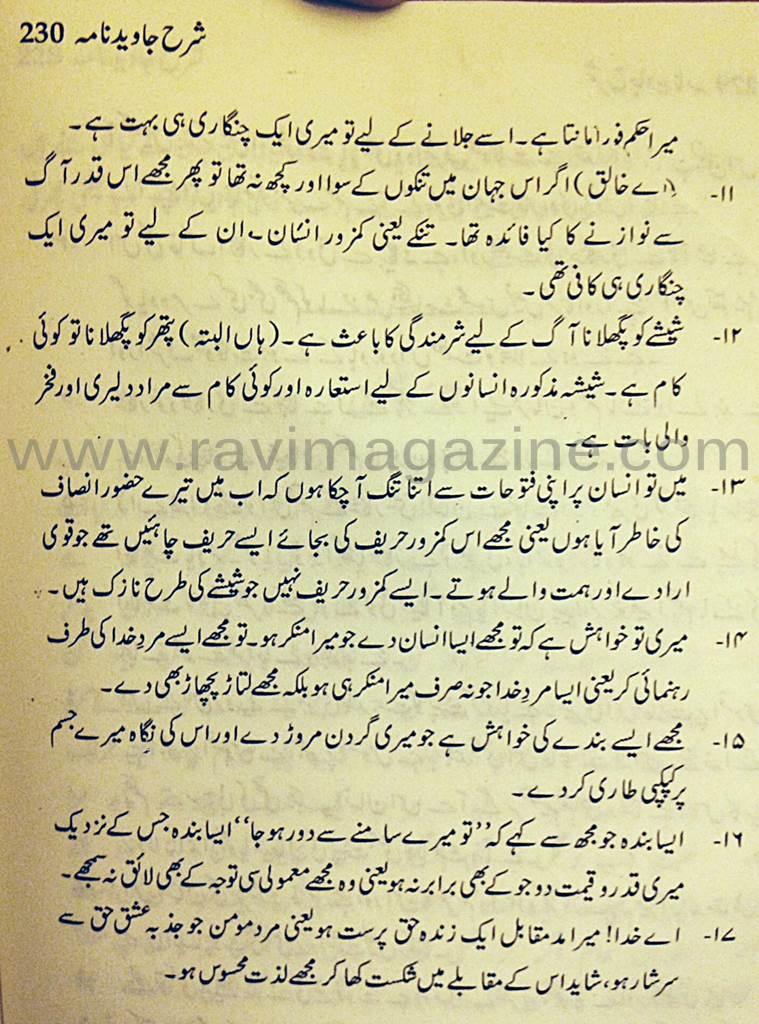 شرح جاوید نامہ 230
میرا حکم فوراً مانتا ہے۔ اسے جلانے کے لیے تو میری ایک چنگاری ہی بہت ہے۔
۱۱- (اے خالق) اگر اس جہان میں تنکوں کے سوا اور کچھ نہ تھا تو پھر مجھے اس قدر آگ
سے نوازنے کا کیا فائدہ تھا۔ تنکے یعنی کمزور انسان ۔ ان کے لیے تو میری ایک
چنگاری ہی کافی تھی۔
۱۲- شیشے کو پگھلانا آگ کے لیے شرمندگی کا باعث ہے۔ (ہاں البتہ) پتھر کو پگھلانا تو کوئی
کام ہے۔ شیشہ مذکورہ انسانوں کے لیے استعارہ اور کوئی کام سے مراد دلیری اور فخر
والی بات ہے۔
www.ravimagazine.com
۱۳- میں تو انسان پر اپنی فتوحات سے اتنا تنگ آ چکا ہوں کہ اب میں تیرے حضور انصاف
کی خاطر آیا ہوں یعنی مجھے اس کمزور حریف کی بجائے ایسے حریف چاہئیں تھے جو قوی
ارادے اور ہمت والے ہوتے۔ ایسے کمزور حریف نہیں جو شیشے کی طرح نازک ہیں۔
۱۴- میری تو خواہش ہے کہ تو مجھے ایسا انسان دے جو میرا منکر ہو۔ تو مجھے ایسے مردِ خدا کی طرف
رہنمائی کر یعنی ایسا مردِ خدا جو نہ صرف میرا منکر ہی ہو بلکہ مجھے لتاڑ پچھاڑ بھی دے۔
۱۵- مجھے ایسے بندے کی خواہش ہے جو میری گردن مروڑ دے اور اس کی نگاہ میرے جسم
پر کپکپی طاری کر دے۔
۱۶- ایسا بندہ جو مجھ سے کہے کہ ’’تو میرے سامنے سے دور ہو جا‘‘ ایسا بندہ جس کے نزدیک
میری قدر و قیمت دو جو کے بھی برابر نہ ہو یعنی وہ مجھے معمولی سی توجہ کے بھی لائق نہ سمجھے۔
۱۷- اے خدا! میرا مد مقابل ایک زندہ حق پرست ہو یعنی مرد مومن جو جذبہ عشق حق سے
سرشار ہو، شاید اس کے مقابلے میں شکست کھا کر مجھے لذت محسوس ہو۔